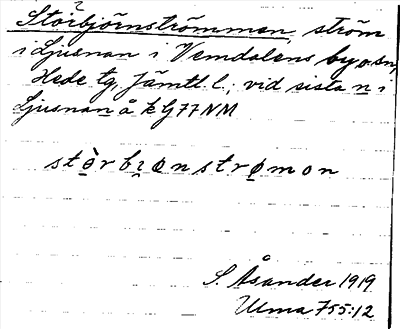 Storbjörnströmmen, ström
i Ljusnan i Vemdalens by o. sn,
Hede tg, Jämtl. l.; vid sista n i
Ljusnan å k G77NM
stòrbɪønstrømon
S. Åsander 1919
Ulma 755:12